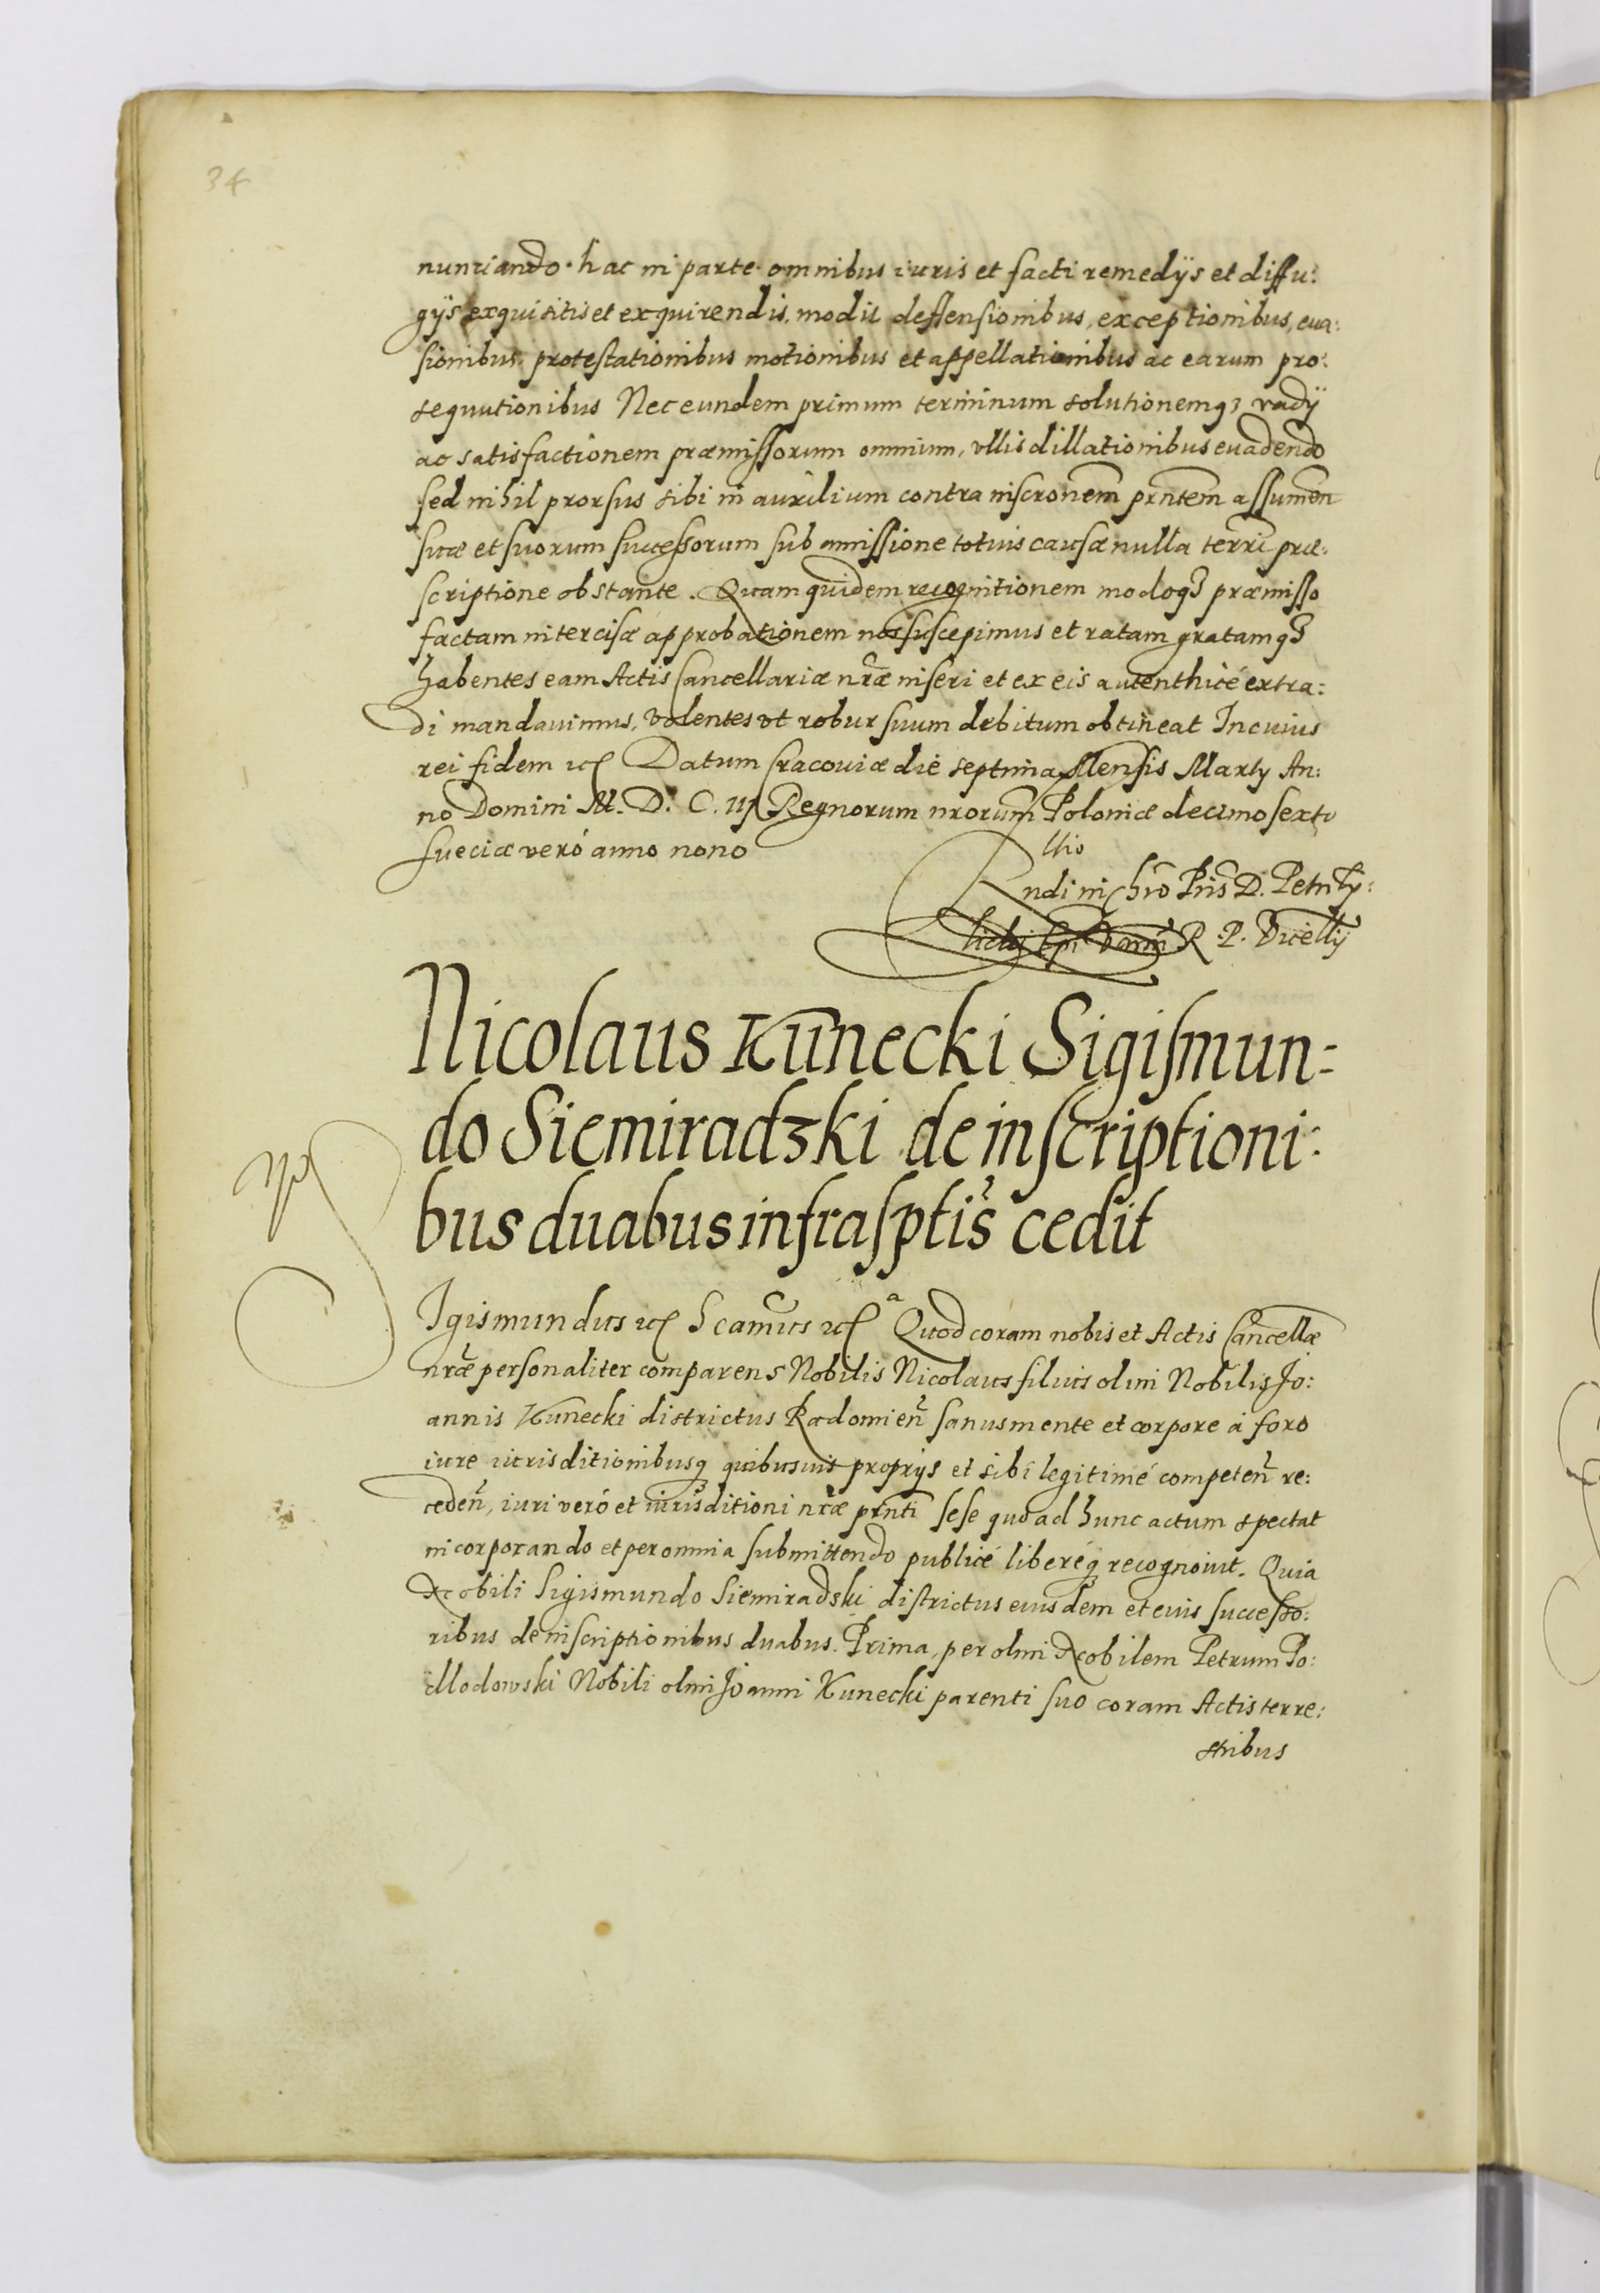 34
nuntiando hac in parte omnibus iuris et facti remedijs et diffu:
gijs exquisitis et exquirendis, modis deffensionibus, exceptionibus, eua:
sionibus, protestationibus motionibus et appellationibus ac earum pro:
sequutionibus Nec eundem primum terminum solutionemq3 vadij
ac satisfactionem præmissorum omnium, vllis dillationibus euadendo
sed nihil prorsus sibi in auxilium contra inscronem prntem assumen
suæ et suorum successorum sub amissione totius causæ nulla terr̃ præ:
scriptione obstante. Quam quidem recognitionem modoq3 præmisso
factam intercisæ approbationem nos suscepimus et ratam gratamq3
habentes eam Actis Cancellariæ nr̃æ inseri et ex eis autenthicé extra:
di mandauimus, volentes vt robur suum debitum obtineat In cuius
rei fidem etc Datum Cracouiæ die septima Mensis Martij An:
no Domini M. D. C. iij Regnorum nrorum Poloniæ decimo sexto
Sueciæ veró anno nono
Rndi in Chro Pris D. Petri Ty:
licky Epi R. P. Vicellij
Nicolaus Kunecki Sigismun=
do Siemiradzki de inscriptioni:
bus duabus infrasptis cedit
Igismundus etc Scamus etc Quod coram nobis et Actis Cancellæ
nr̃æ personaliter comparens Nobilis Nicolaus filius olim Nobilis Jo:
annis Kunecki districtus Radomien̄ sanus mente et corpore á foro
iure iurisditionibusq quibusuis proprijs et sibi legitimé competen̄ re:
ceden̄, iuri veró et iurisditioni nr̃æ prnti sese quo ad hunc actum spectat
incorporando et per omnia submittendo publicé liberéq recognouit. Quia
Nobili Sigismundo Siemiradski districtus eiusdem et eius successo:
ribus de inscriptionibus duabus. Prima, per olim Nobilem Petrum Po:
dlodowski Nobili olim Joanni Kunecki parenti suo coram Actis terre:
stribus